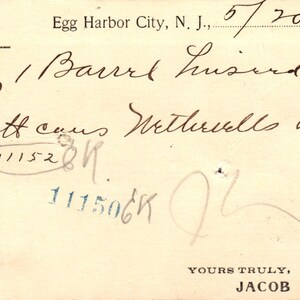 Egg Harbor City, N. J., 5/20
1 Barrel Linseed
cans Wetherills
11152 EK
11150 EK
YOURS TRULY,
JACOB